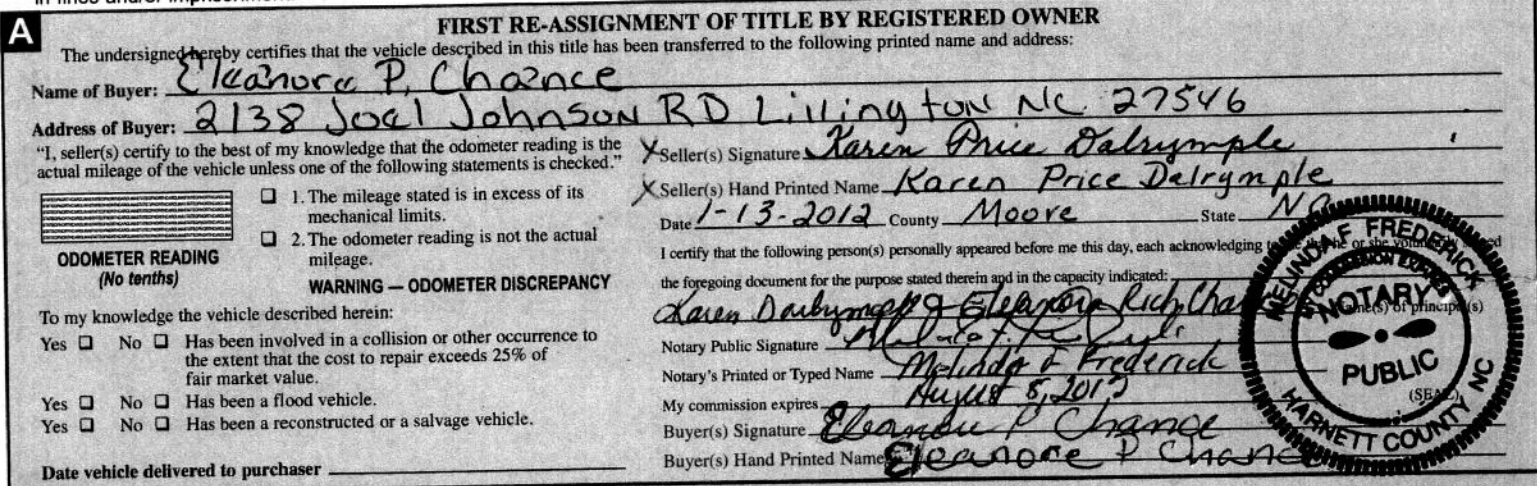 A
FIRST RE-ASSIGNMENT OF TITLE BY REGISTERED OWNER
The undersigned hereby certifies that the vehicle described in this title has been transferred to the following printed name and address:
Name of Buyer: Eleanore P. Chance
Address of Buyer: 2138 Joel Johnson RD Lillington NC 27546
"I, seller(s) certify to the best of my knowledge that the odometer reading is the
actual mileage of the vehicle unless one of the following statements is checked."
☐ 1. The mileage stated is in excess of its
mechanical limits.
☐ 2. The odometer reading is not the actual
mileage.
ODOMETER READING
(No tenths)
WARNING — ODOMETER DISCREPANCY
To my knowledge the vehicle described herein:
Yes ☐ No ☐ Has been involved in a collision or other occurrence to
the extent that the cost to repair exceeds 25% of
fair market value.
Yes ☐ No ☐ Has been a flood vehicle.
Yes ☐ No ☐ Has been a reconstructed or a salvage vehicle.
Date vehicle delivered to purchaser
X Seller(s) Signature Karen Price Dalrymple
X Seller(s) Hand Printed Name Karen Price Dalrymple
Date 1-13-2012 County Moore State NC
I certify that the following person(s) personally appeared before me this day, each acknowledging to he or she
the foregoing document for the purpose stated therein and in the capacity indicated:
Karen & Eleanora Rich Chance
Name(s) of principal(s)
Notary Public Signature
Notary's Printed or Typed Name Melinda F Frederick
My commission expires August 5, 2012
Buyer(s) Signature Eleanore P Chance
Buyer(s) Hand Printed Name Eleanore P Chance
(SEAL)
MELINDA F FREDERICK
MY COMMISSION EXPIRES
NOTARY
PUBLIC
HARNETT COUNTY NC